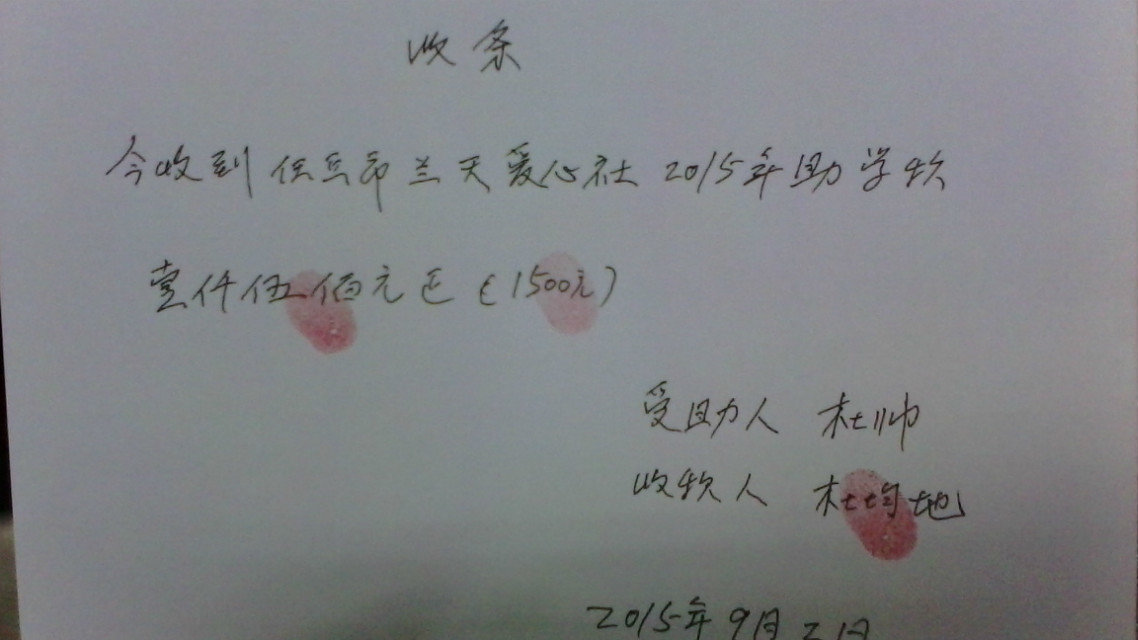 收条
今收到任丘市兰天爱心社 2015年助学款
壹仟伍佰元正(1500元)
受助人 杜帅
收款人 杜均地
2015年9月2日